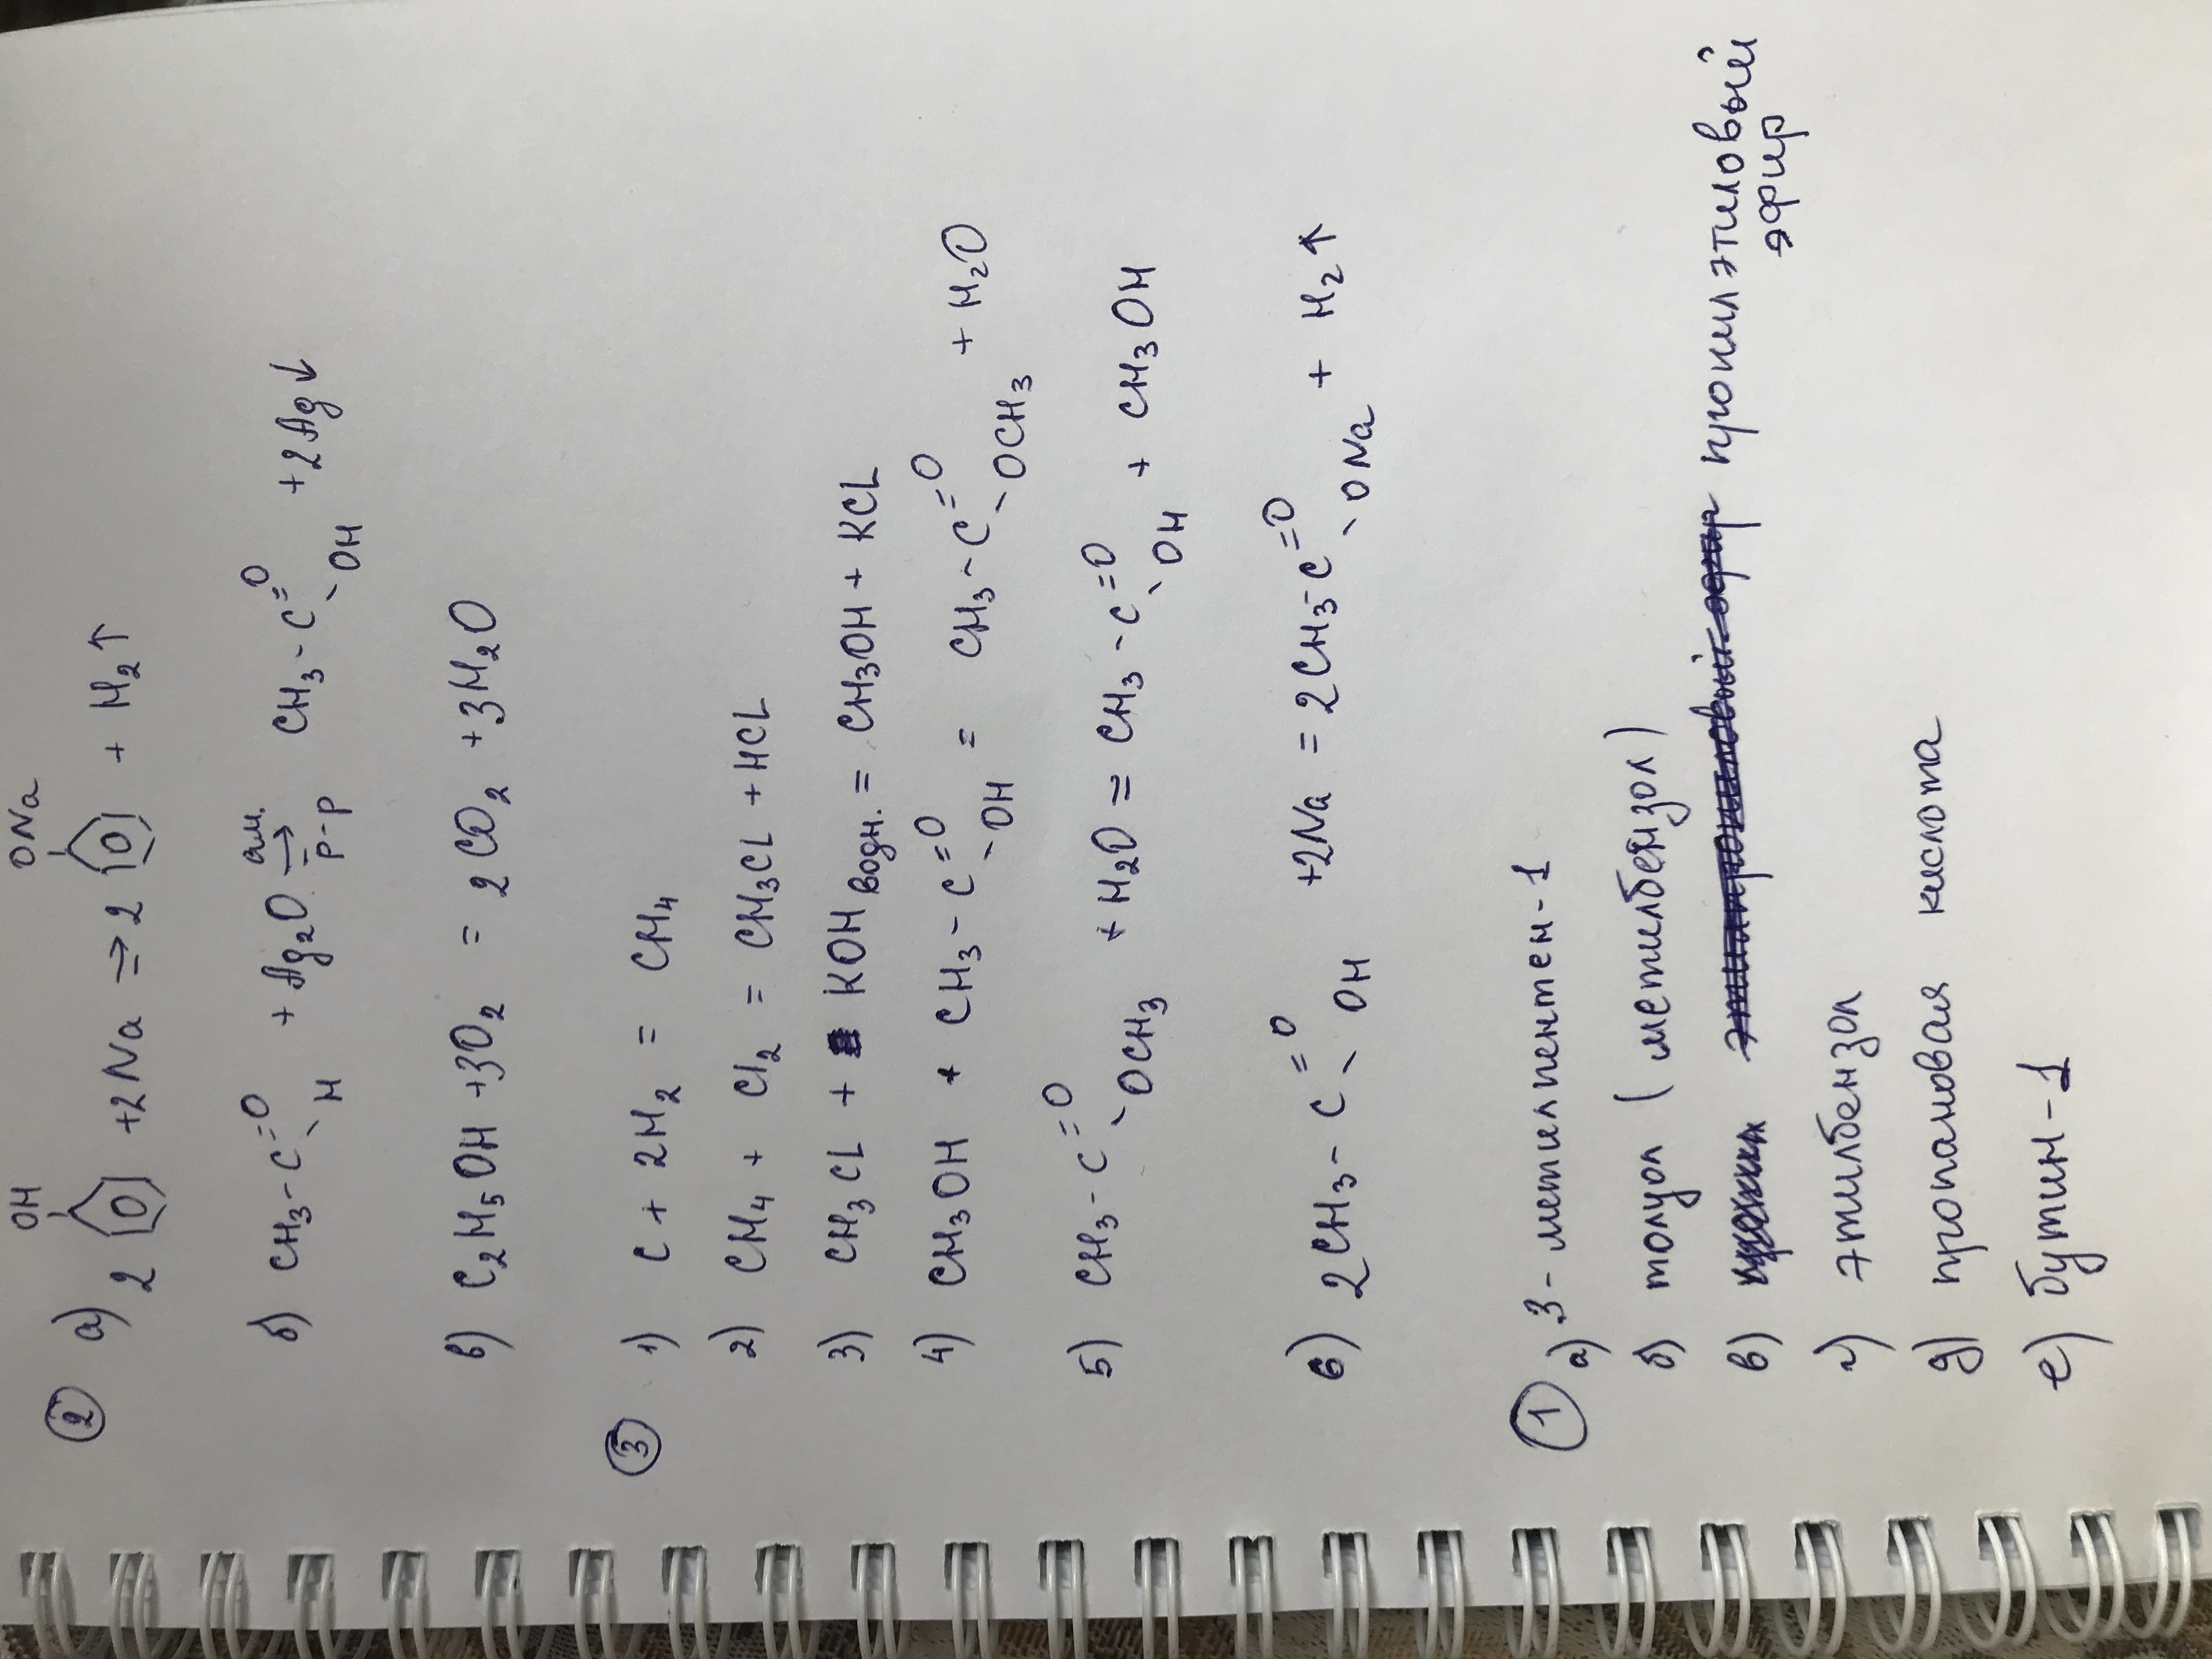 ② а) 2 OH +2Na => 2 ONa + H₂↑
б) CH₃-C=O -H + Ag₂O ам. → р-р CH₃-C=O -OH +2Ag↓
в) C₂H₅OH +3O₂ = 2CO₂ +3H₂O
③ 1) C + 2H₂ = CH₄
2) CH₄ + Cl₂ = CH₃CL + HCL
3) CH₃CL + KOH водн. = CH₃OH + KCL
4) CH₃OH + CH₃-C=O -OH = CH₃-C=O -OCH₃ + H₂O
5) CH₃-C=O -OCH₃ + H₂O = CH₃-C=O -OH + CH₃OH
6) 2CH₃-C=O -OH +2Na = 2CH₃-C=O -ONa + H₂↑
① а) 3-метилпентен-1
б) толуол (метилбензол)
в) пропилэтиловый
эфир
г) этилбензол
д) пропановая кислота
е) бутин-1